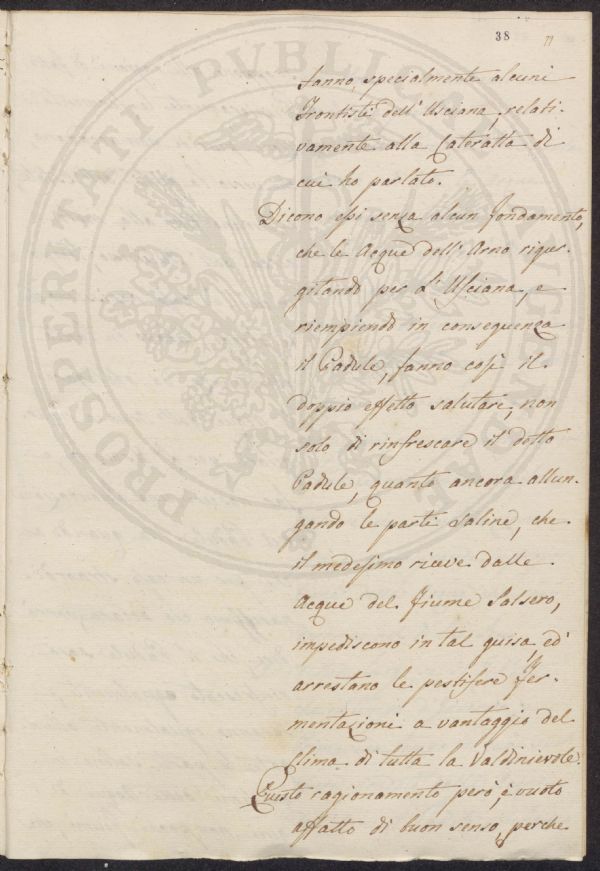 38 11
fanno, specialmente alcuni
Frontisti dell' Usciana, relati-
vamente alla Cateratta di
cui ho parlato.
Dicono essi senza alcun fondamento,
che le Acque dell' Arno rigur-
gitando per L' Usciana, e
riempiendo in conseguenza
il Padule, fanno così il
doppio effetto salutare, non
solo di rinfrescare il detto
Padule, quanto ancora allun-
gando le parti saline, che
il medesimo riceve dalle
Acque del fiume Salsero,
impediscono in tal guisa, ed
arrestano le pestifere fer-
mentazioni a vantaggio del
Clima di tutta la Valdinievole.
Questo ragionamento però, è vuoto
affatto di buon senso, perche
PROSPERITATI PUBLICAE AUGENDAE